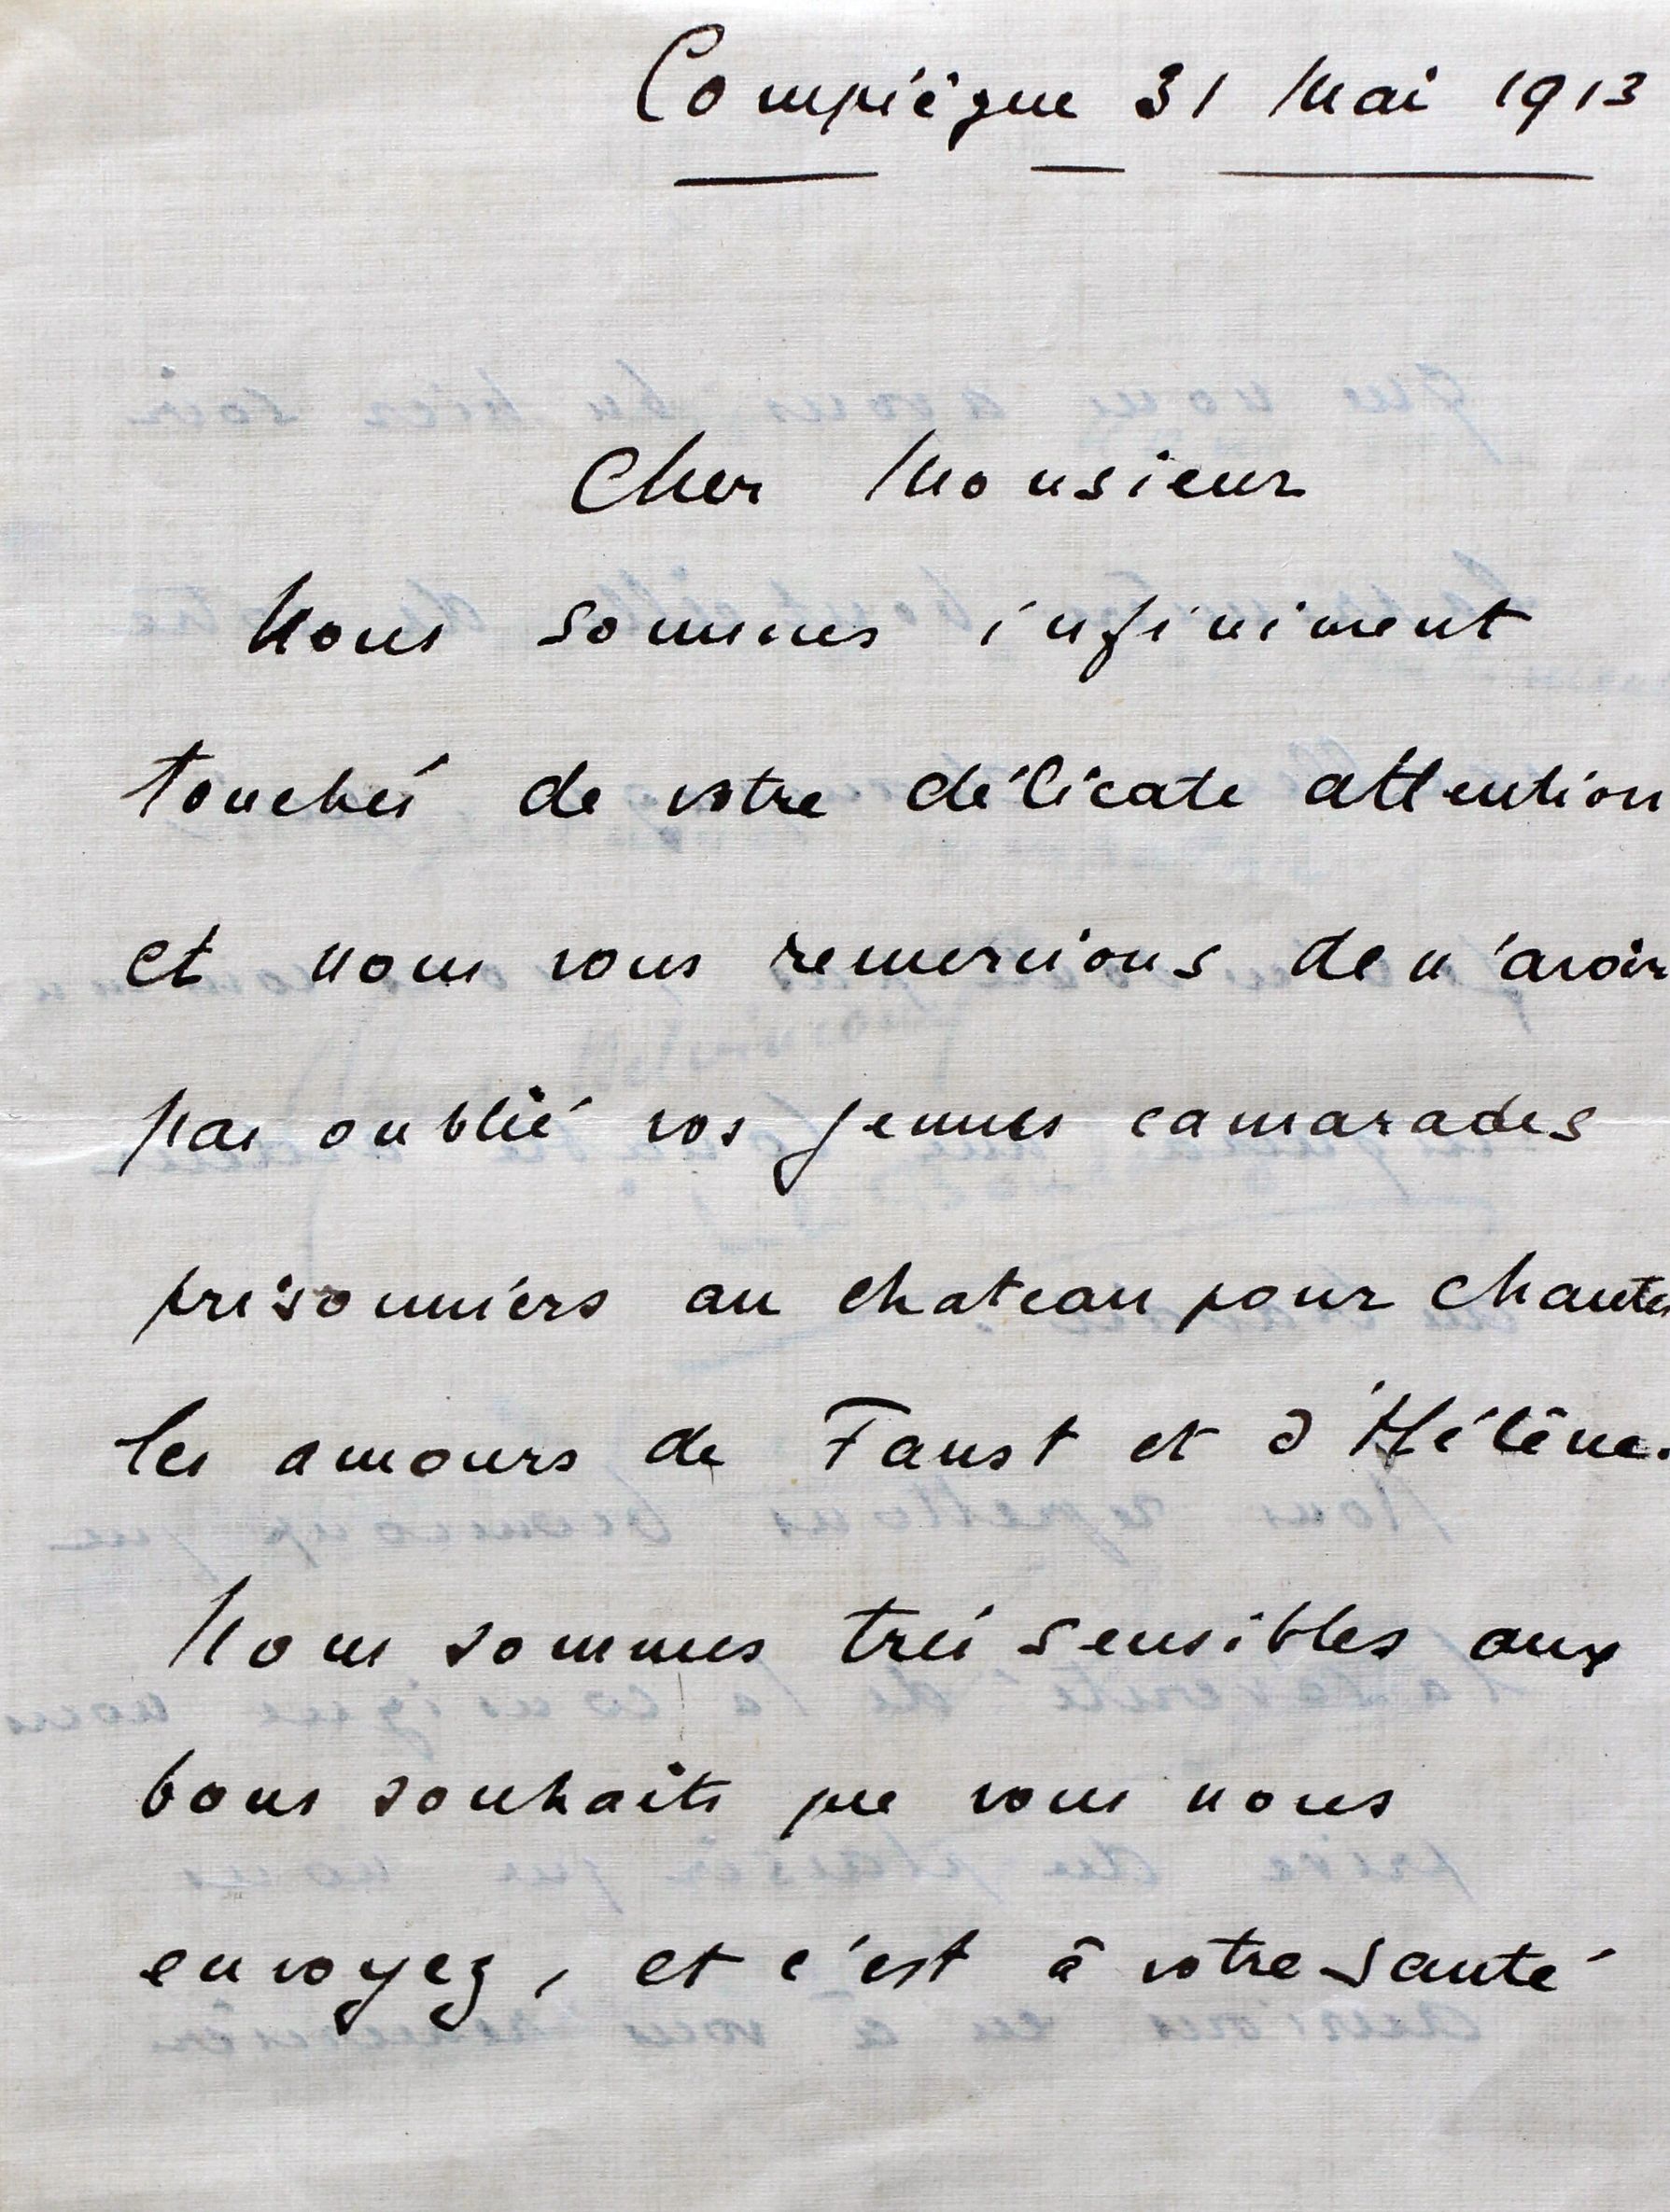 Compiègne 31 Mai 1913
Cher Monsieur
Nous sommes infiniment
touchés de votre délicate attention
et nous vous remercions de n'avoir
pas oublié vos jeunes camarades
prisonniers au chateau pour chanter
les amours de Faust et d'Hélène.
Nous sommes très sensibles aux
bons souhaits que vous nous
envoyez, et c'est à votre santé